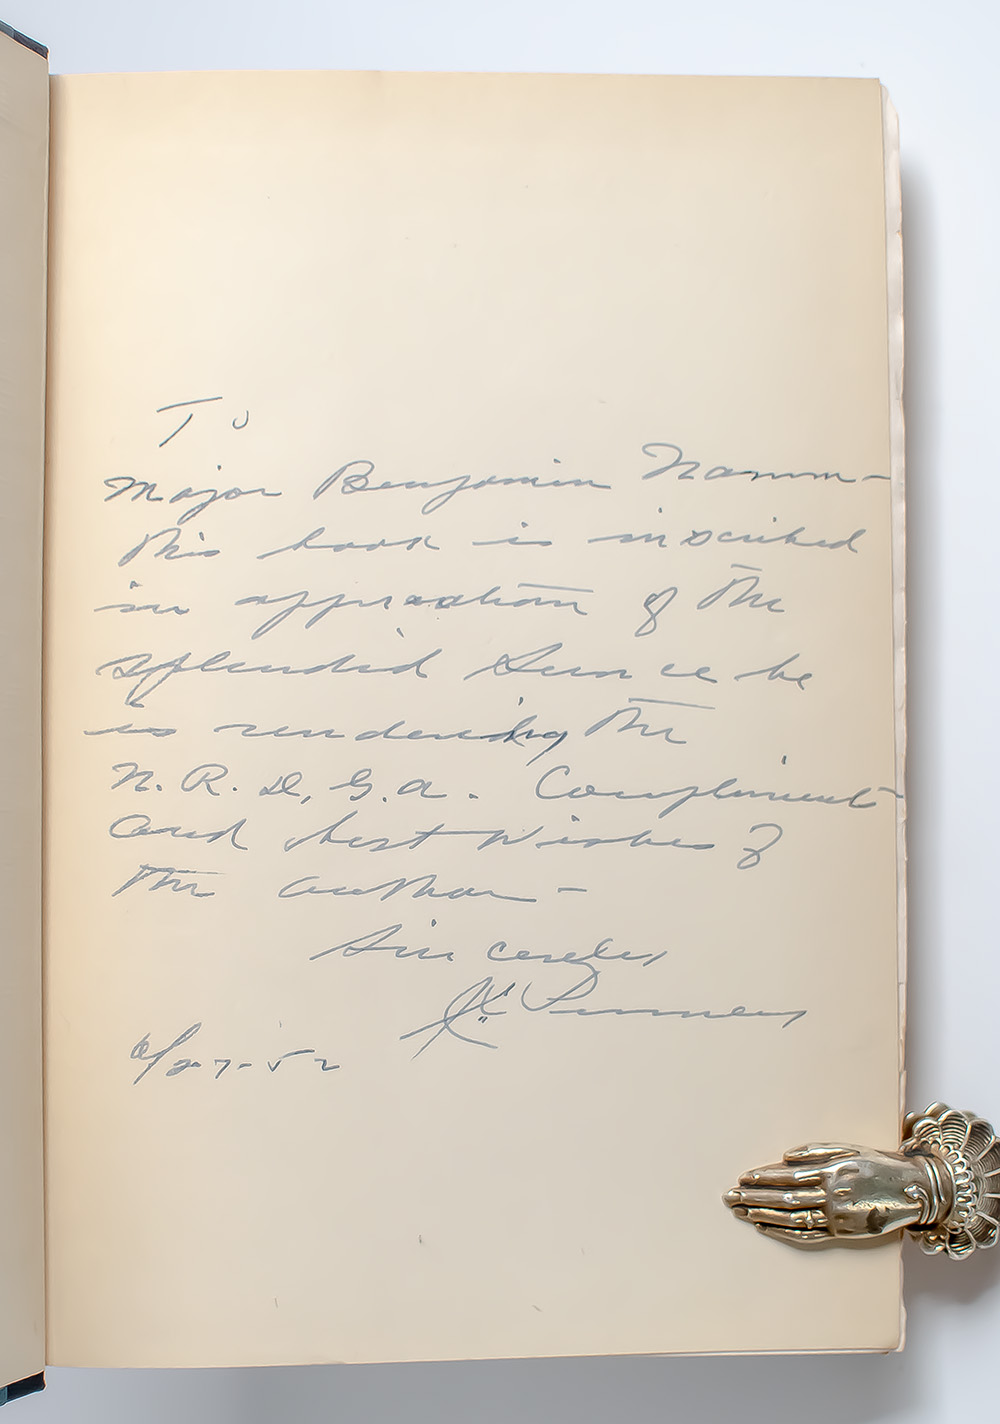 To
Major Benjamin Namm-
This book is inscribed
in appreation of the
splendid service he
is rendering the
N. R. D. G. A. Compliments
and best wishes of
the author -
Sincereley
J.C. Penney
6/27-52